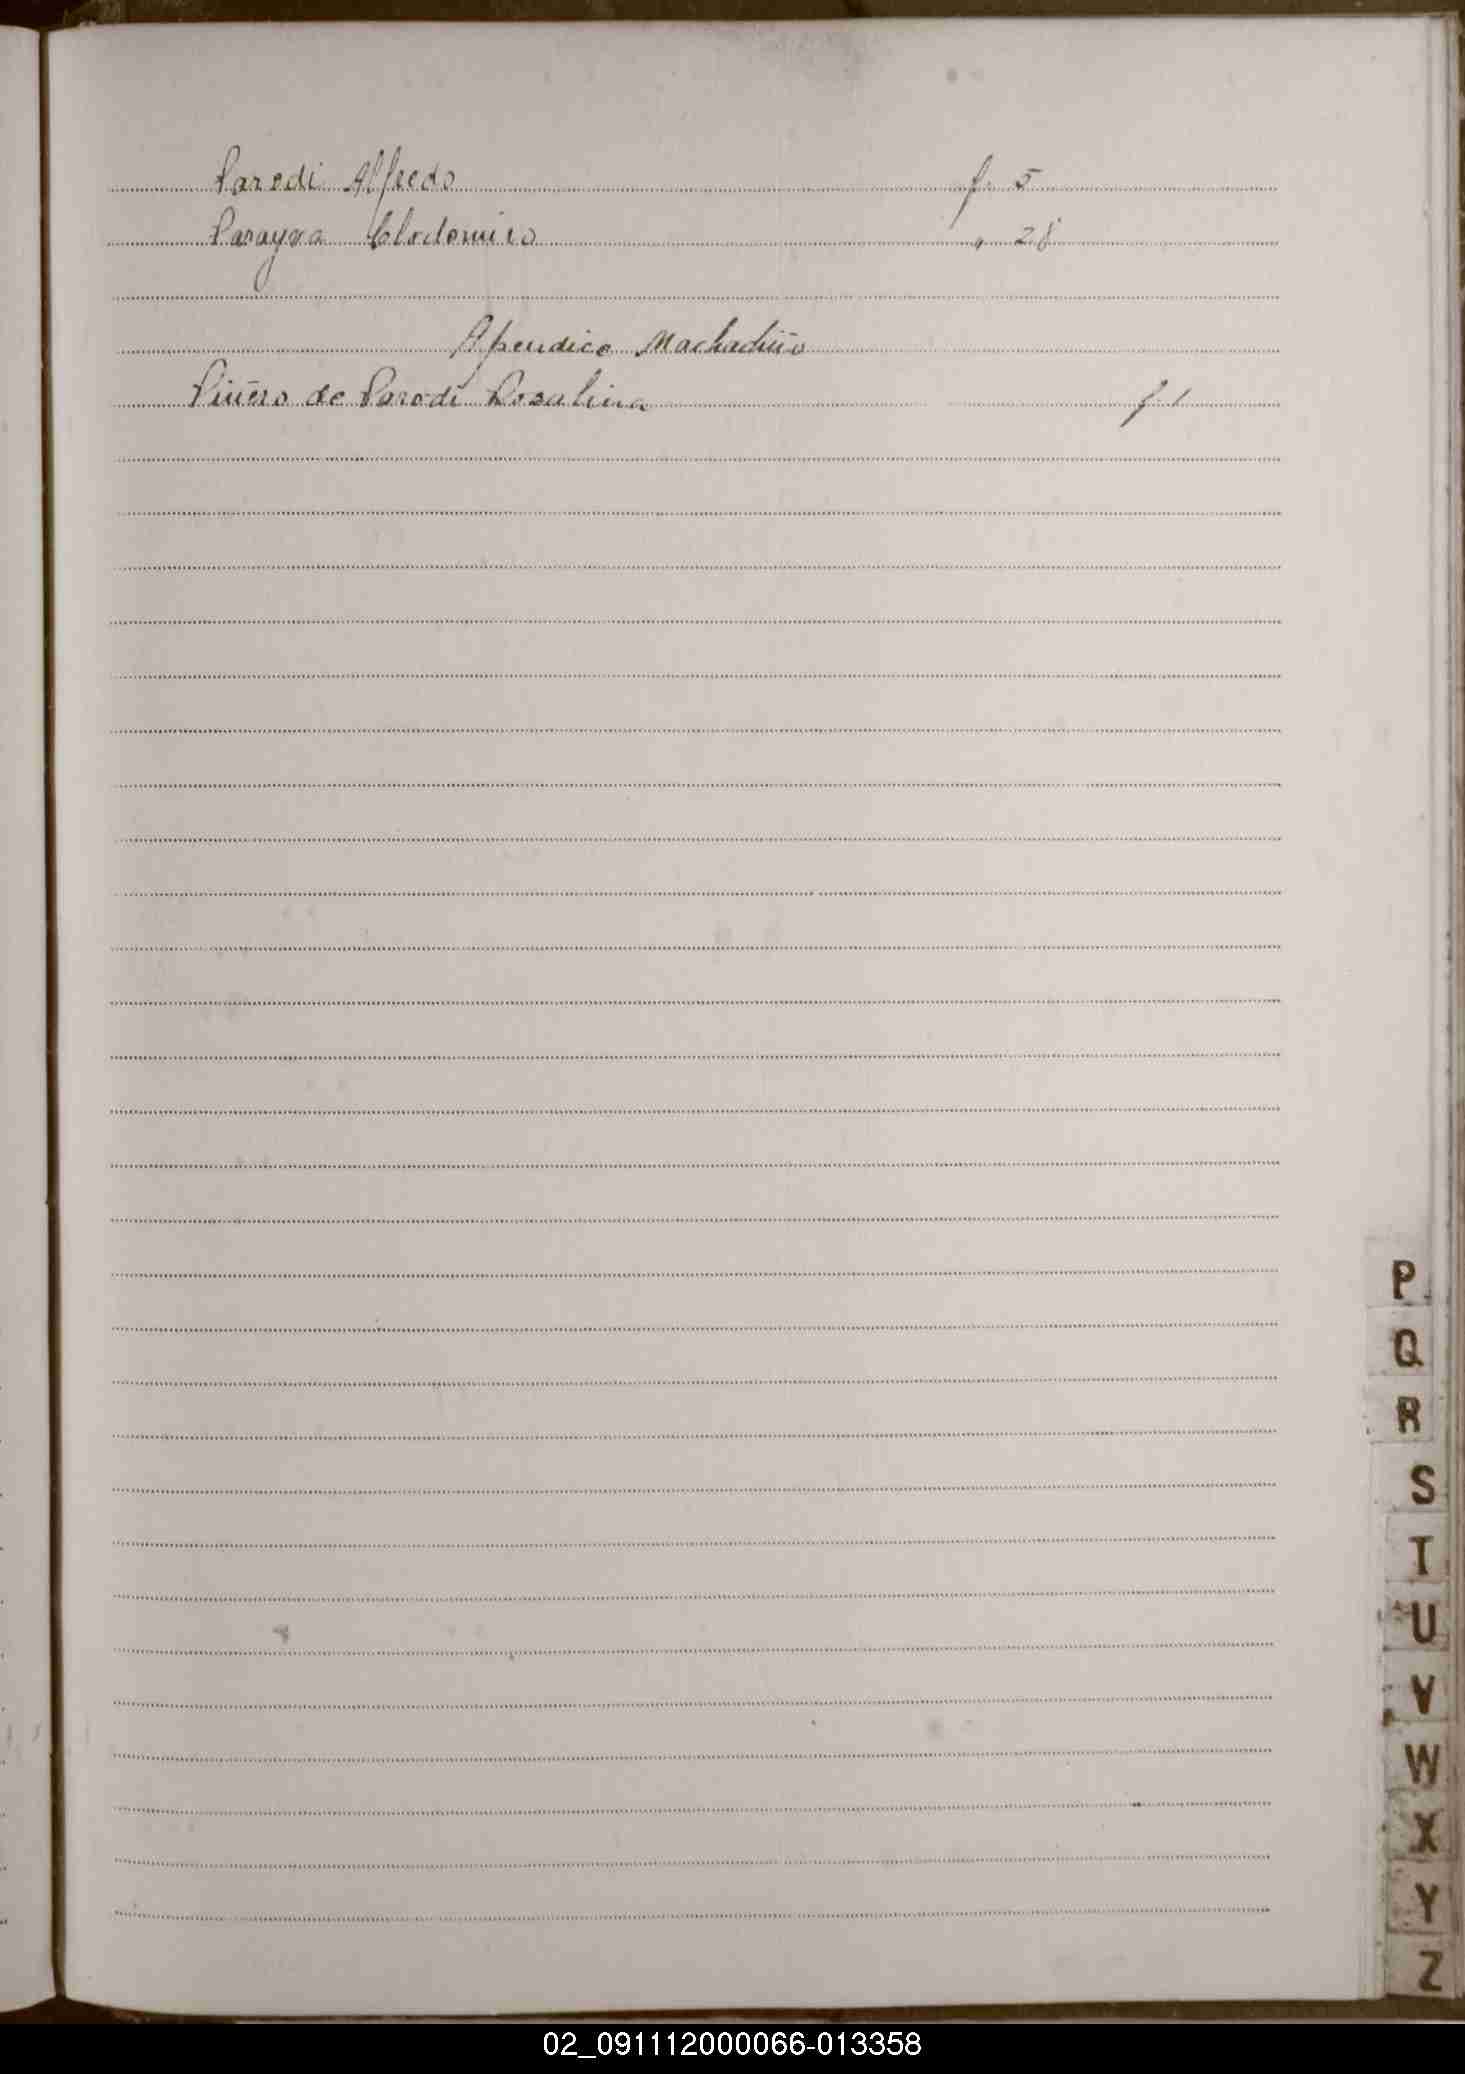 Parodi Alfredo f. 5
Parayva Clodomiro " 28
Apendice Machadiño
Piñero de Parodi Rosalina f. 1
P
Q
R
S
T
U
V
W
X
Y
Z
02_091112000066-013358